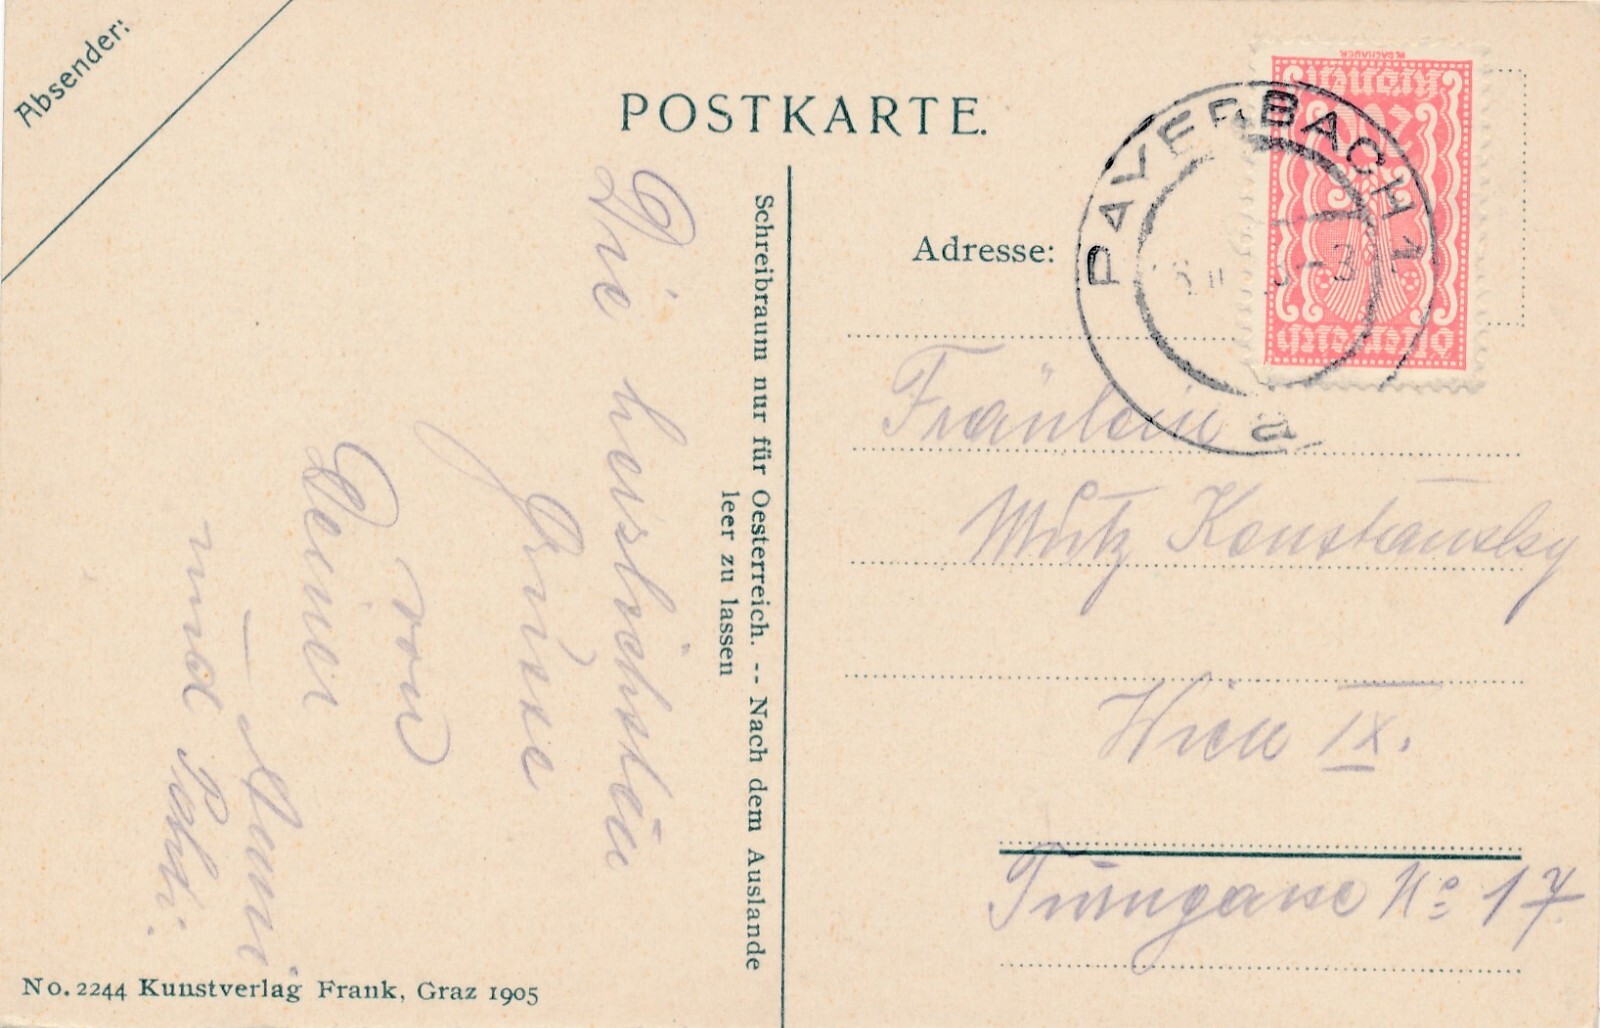 Absender:
POSTKARTE.
Adresse:
PAYERBACH
Österreich
Kronen
Schreibraum nur für Oesterreich. -- Nach dem Auslande
leer zu lassen
Die herzlichsten
Grüsse
von
Deiner
Anni
und
Fräulein
Mutz
Wien IX.
No 17
No. 2244 Kunstverlag Frank, Graz 1905